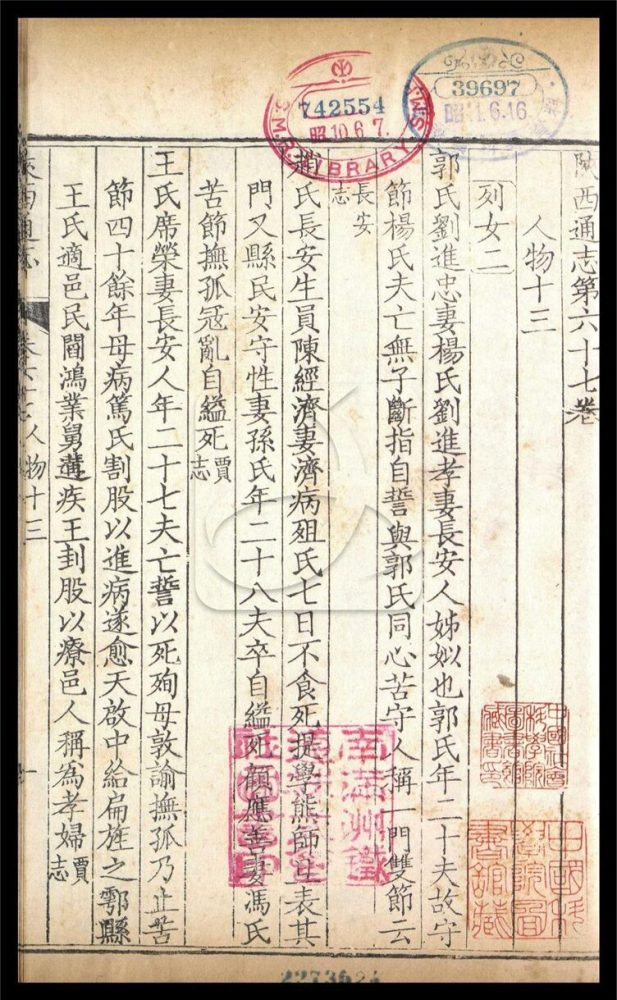 陝西通志第六十七卷
人物十三
列女二
郭氏劉進忠妻楊氏劉進孝妻長安人姊姒也郭氏年二十夫故守
節楊氏夫亡無子斷指自誓與郭氏同心苦守人稱一門雙節云
長安
志
氏長安生員陳經濟妻濟病殂氏七日不食死提學熊師旦表其
門又縣民安守性妻孫氏年二十八夫卒自縊死顔應善妻馮氏
苦節撫孤冦亂自縊死賈志
王氏席榮妻長安人年二十七夫亡誓以死殉母敦諭撫孤乃止苦
節四十餘年母病篤氏割股以進病遂愈天啟中給扁旌之鄠縣
王氏適邑民閻鴻業舅遘疾王刲股以療邑人稱為孝婦賈志
陝西通志
人物十三
一
742554
昭10.6.7.
S.M.R. LIBRARY
39697
6.16
南滿洲鐵
中國科
學院圖
書館藏
2273624